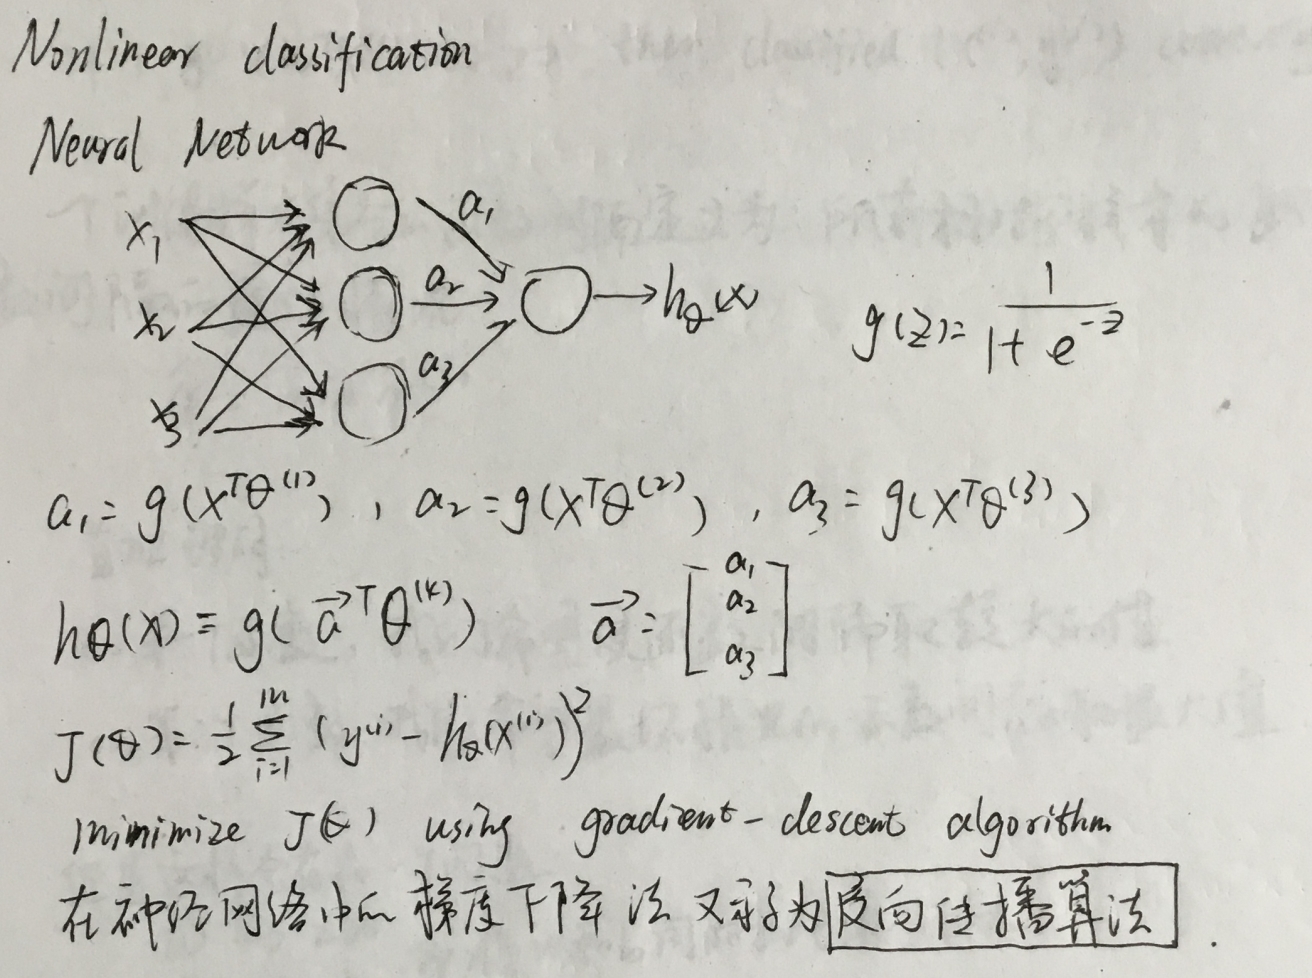 Nonlinear classification
Neural Network
x₁ x₂ x₃ a₁ a₂ a₃ → h_θ(x) g(z) = 1/(1+e^{-z})
a₁ = g(x^Tθ^{(1)}), a₂ = g(x^Tθ^{(2)}), a₃ = g(x^Tθ^{(3)})
h_θ(x) = g(\vec{a}^Tθ^{(4)}) \vec{a} = [a₁ a₂ a₃]
J(θ) = 1/2 ∑_{i=1}^{m} (y^{(i)} - h_θ(x^{(i)}))²
minimize J(θ) using gradient-descent algorithm
在神经网络中的梯度下降法又称为反向传播算法.